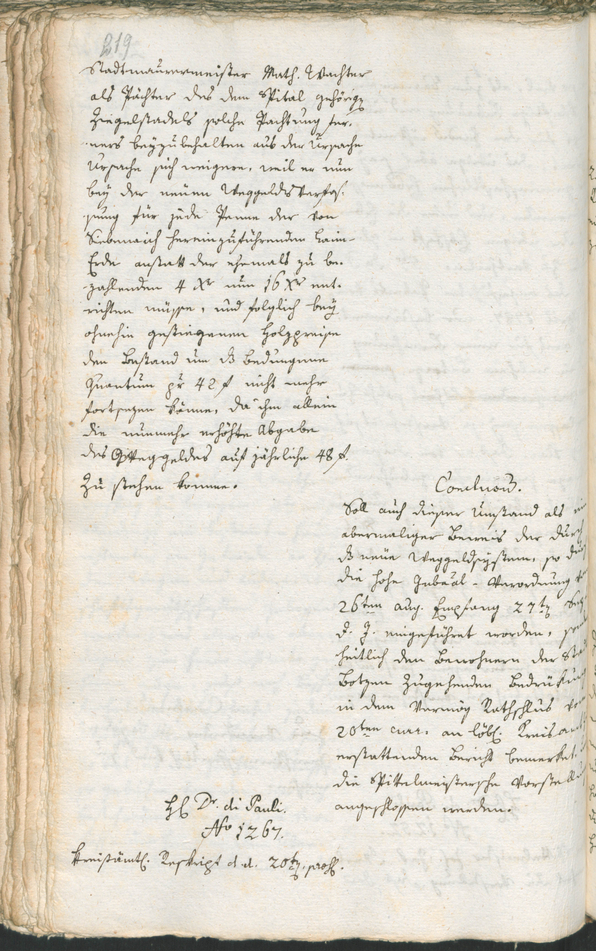 219
Stadtmaurermeister Math. Wachter
als Pächter des dem Spital gehörige
Ziegelstadels solche Pachtung fer-
ners beyzubehalten aus der Ursache
Ursache sich weigere, weil er nun
bey der neüen Weggeldsverfas-
sung für jede der von
Siebeneich hereinzuführenden Laim-
Erde anstatt der ehemals zu be-
zahlenden 4 Xr nun 16 Xr ent-
richten müsse, und folglich bey
ohnehin gestiegenen Holzpreise
den Bestand um ds bedungene
Quantum pr 42 f nicht mehr
fortsezen könne, da ihm allein
die nunmehr erhöhte Abgabe
des Weggeldes auf jährliche 48 f.
zu stehen komme.
Conclusum.
Soll auch dieser Umstand als
abermaliger Beweis der durch
ds neüe Weggeldsystem, so
die hohe Gubial-Verordnung
26ten aug. Empfang 27ten
d. J. eingeführet worden,
heitlich den Bewohnern der Stadt
Botzen zugehenden Bedrückung
in dem Vermög Rathschlus
20ten curr. an löbl. Kreisamt
erstattenden Bericht bemerket,
die Spittelmeistersche Vorstellung
angeschlossen werden.
H Dr. di Pauli.
No 1267.
Kreisämtl. Reskript d. d. 20ten,